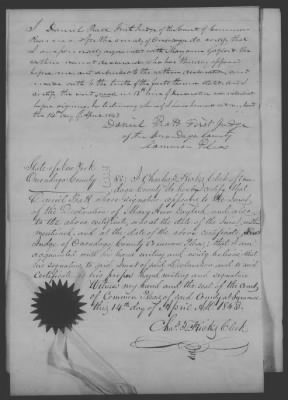 I Daniel Pratt First Judge of the Court of Common
Pleas in and for the county of Onondaga do certify that
I am personally acquainted with
within named declarant who has thereby appeared
before me and subscribed to the within declaration and
made oath to the truth of the
before signing. In testimony whereof I have hereunto set my hand
the 14th day of April 1843
Daniel Pratt First Judge
of the Onondaga County
Common Pleas
State of New York
Onondaga County
SS. I Charles T. Hicks Clerk of Onon-
daga County do hereby certify that
Daniel Pratt whose signature appears to the Jurat
of the Declaration of Mary Ann England and also
to the above certificate, was at the date of the Jurat, within
mentioned, and at the date of the above certificate, First
Judge of Onondaga County Common Pleas; that I am
acquainted with his hand writing and verily believe that
his signature to said Jurat of said Declaration and to said
Certificate is his proper hand writing and signature
Witness my hand and the seal of the Court
of Common Pleas of said County at Syracuse
this 14th day of April AD. 1843.
Chas. T. Hicks Clerk